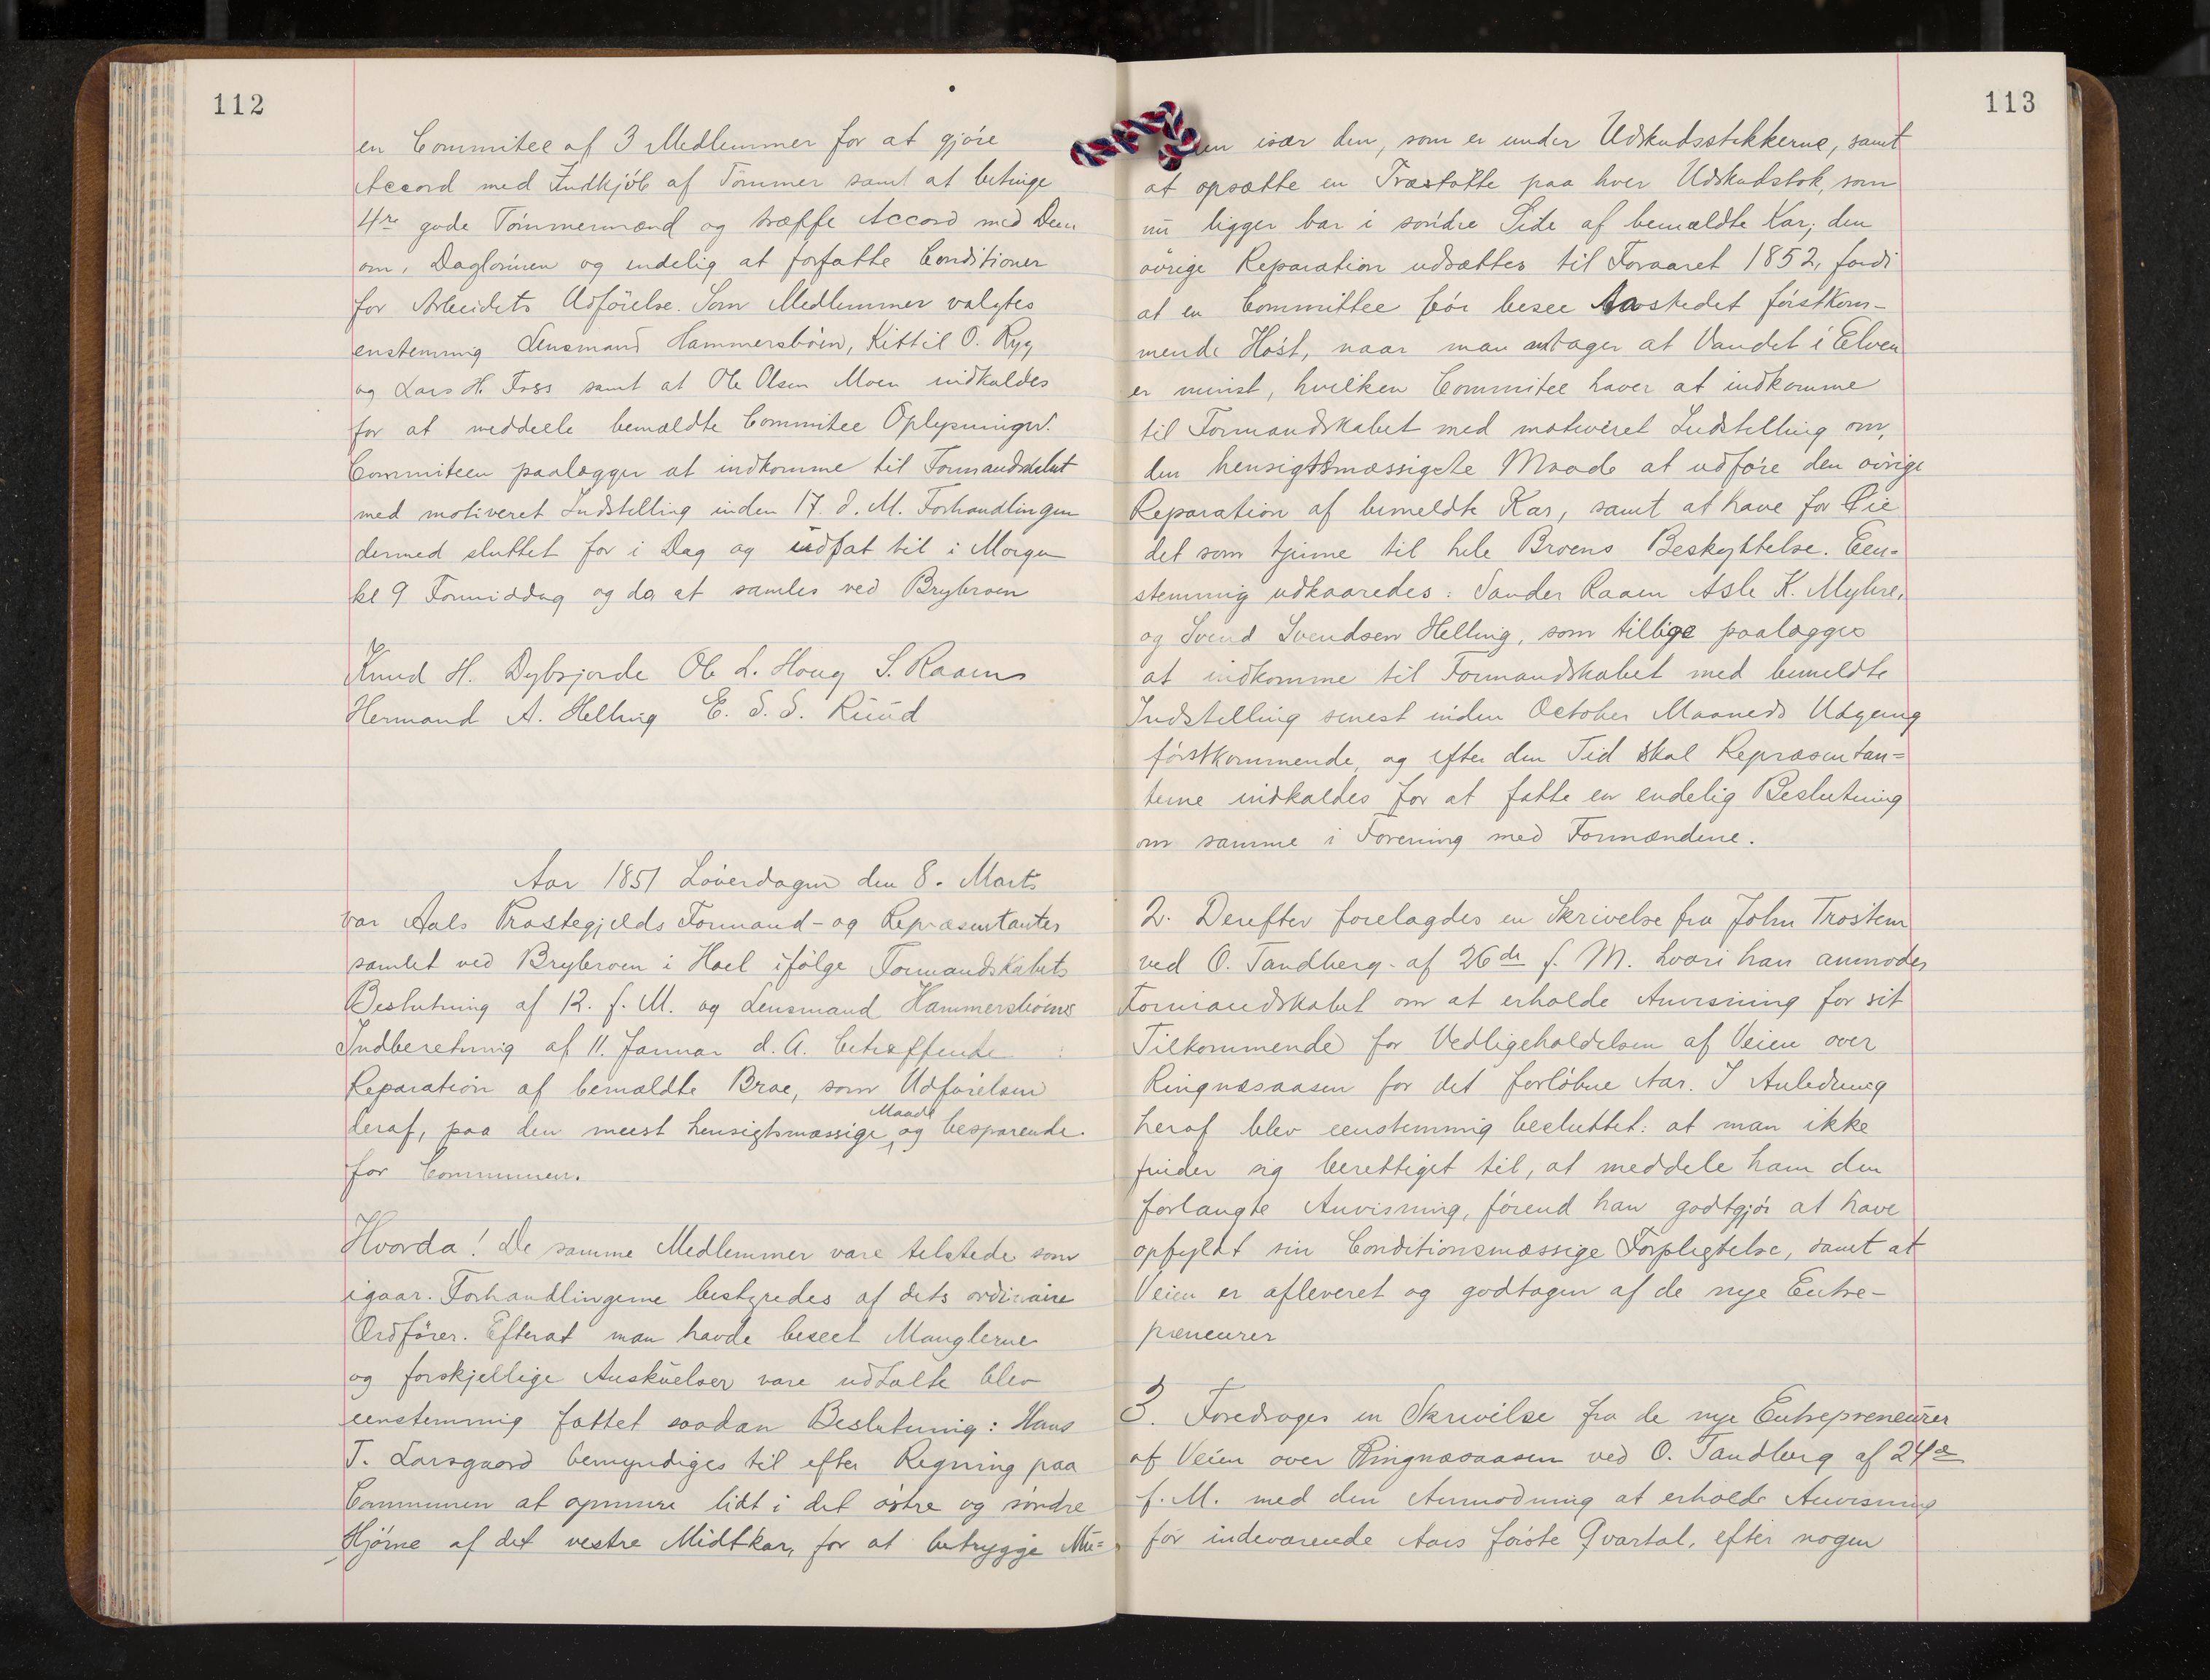 112
en Commitee af 3 Medlemmer for at gjöre
Accord med Indkjöb af Tömmer samt at betinge
4re gode Tömmermænd og træffe Accord med Dem
om, Daglönnen og endelig at forfatte Conditioner
for Arbeidets Udförelse. Som Medlemmer valgtes
enstemmig Lensmand Hammersböen, Kittil O. Ryg
og Lars H. Foss samt at Ole Olsen Moen indkaldes
for at meddeele bemældte Commitee Oplysninger.
Commiteen paalægger at indkomme til Formandskabet
med motiveret Indstilling inden 17. d. M. Forhandlingen
dermed sluttet for i Dag og udsat til i Morgen
kl 9 Formiddag og da at samles ved Brybroen
Knud H. Dybsjorde Ole L. Houg S. Raaen
Hermand A. Helling E. S. S. Ruud
Aar 1851 Löverdagen den 8. Marts
var Aals Præstegjelds Formand- og Repræsentanter
samlet ved Brybroen i Hoel ifölge Formandskabets
Beslutning af 12. f. M. og Lensmand Hammersböens
Indberetning af 11. Januar d. A. betræffende
Reparation af bemældte Broe, som Udförelsen
deraf, paa den meest hensigtsmæssige Maade og besparende
for Communen.
Hvorda! De samme Medlemmer vare telstede som
igaar. Forhandlingerne bestyredes af dets ordinaire
Ordförer. Efterat man havde beseet Manglerne
og forskjellige Anskuelser vare udtalte blev
eenstemmig fattet saadan Beslutning: Hans
T. Larsgaard bemyndiges til efter Regning paa
Communen at opmure lidt i det östre og söndre
Hjörne af det vestre Midtkar, for at betrygge Mu=
113
ren især den, som er under Udskudsstokkerne, samt
at opsætte en Træstötte paa hver Udskudstok, som
nu ligger bar i söndre Side af bemældte Kar; den
övrige Reparation udsættes til Foraaret 1852, fordi
at en Committee bör besee Aastedet förstkom-
mende Höst, naar man antager at Vandet i Elven
er minst, hvilken Commitee haver at indkomme
til Formandskabet med motiveret Indstilling om,
den hensigtsmæssigste Maade at udföre den övrige
Reparation af bemeldte Kar, samt at have for Öie
det som tjene til hele Broens Beskyttelse. Een=
stemmig udkaaredes: Sander Raaen Asle K. Myhre,
og Svend Svendsen Helling, som tillige paalægges
at indkomme til Formandskabet med bemeldte
Indstilling senest inden October Maaneds Udgang
förstkommende, og efter den Tid skal Repræsentan=
terne indkaldes for at fatte en endelig Beslutning
om samme i Forening med Formændene.
2. Derefter forelagdes en Skrivelse fra John Trostem
ved O. Tandberg. af 26de f. M. hvori han anmodes
Formandskabet om at erholde Anvisning for sit
Tilkommende for Vedligeholdelsen af Veien over
Ringnæsaasen for det forlöbne Aar. I Anledning
heraf blev eenstemmig besluttet: at man ikke
finder sig berettiget til, at meddele ham den
forlangte Anvisning, förend han godtgjör at have
opfyldt sin Conditionsmæssige Forpligtelse, samt at
Veien er afleveret og godtagen af de nye Entre-
preneurer
3. Foredroges en Skrivelse fra de nye Entrepreneurer
af Veien over Ringnæsaasen ved O. Tandberg af 24de
f. M. med den Anmodning at erholde Anvisning
for indeværende Aars förste Qvartal, efter nogen